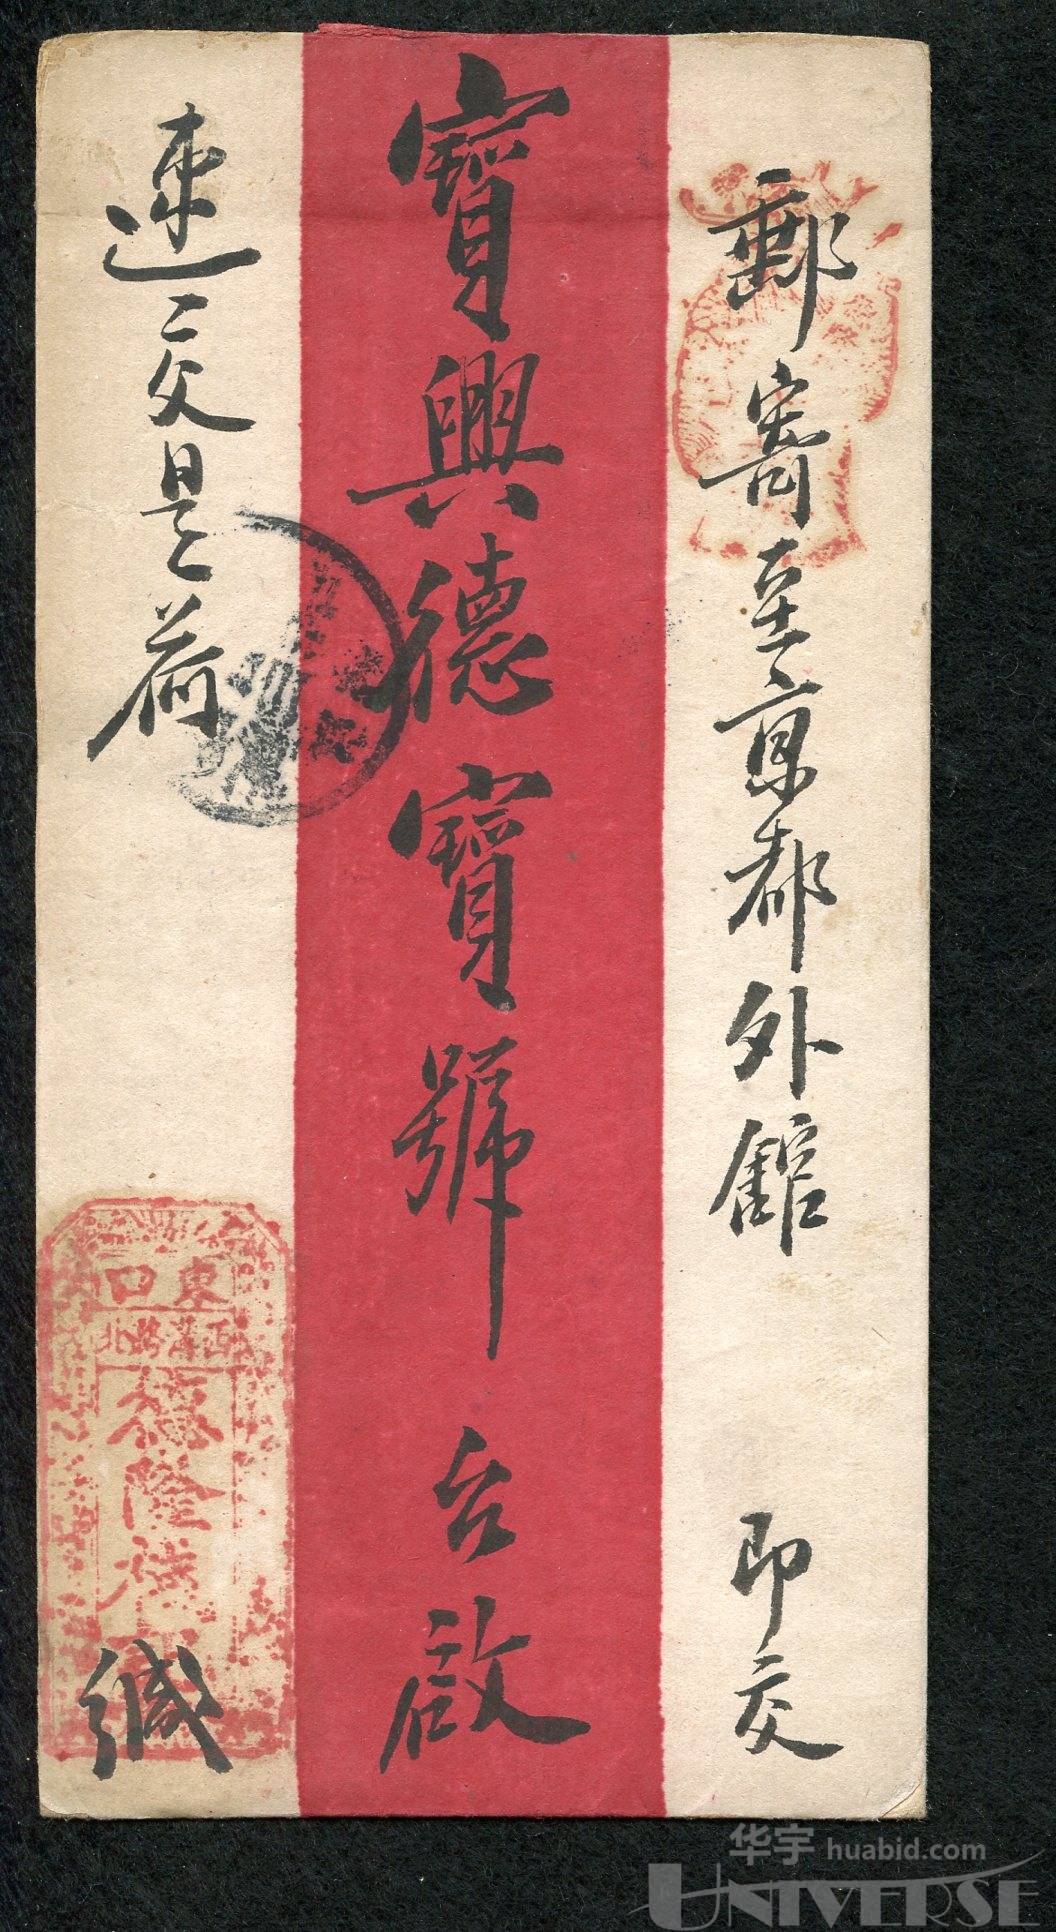 郵寄至京都外舘　即交
寶興德寶號　台啟
速交是荷
東口
正溝路北
德隆
緘
华宇 huabid.com
UNIVERSE